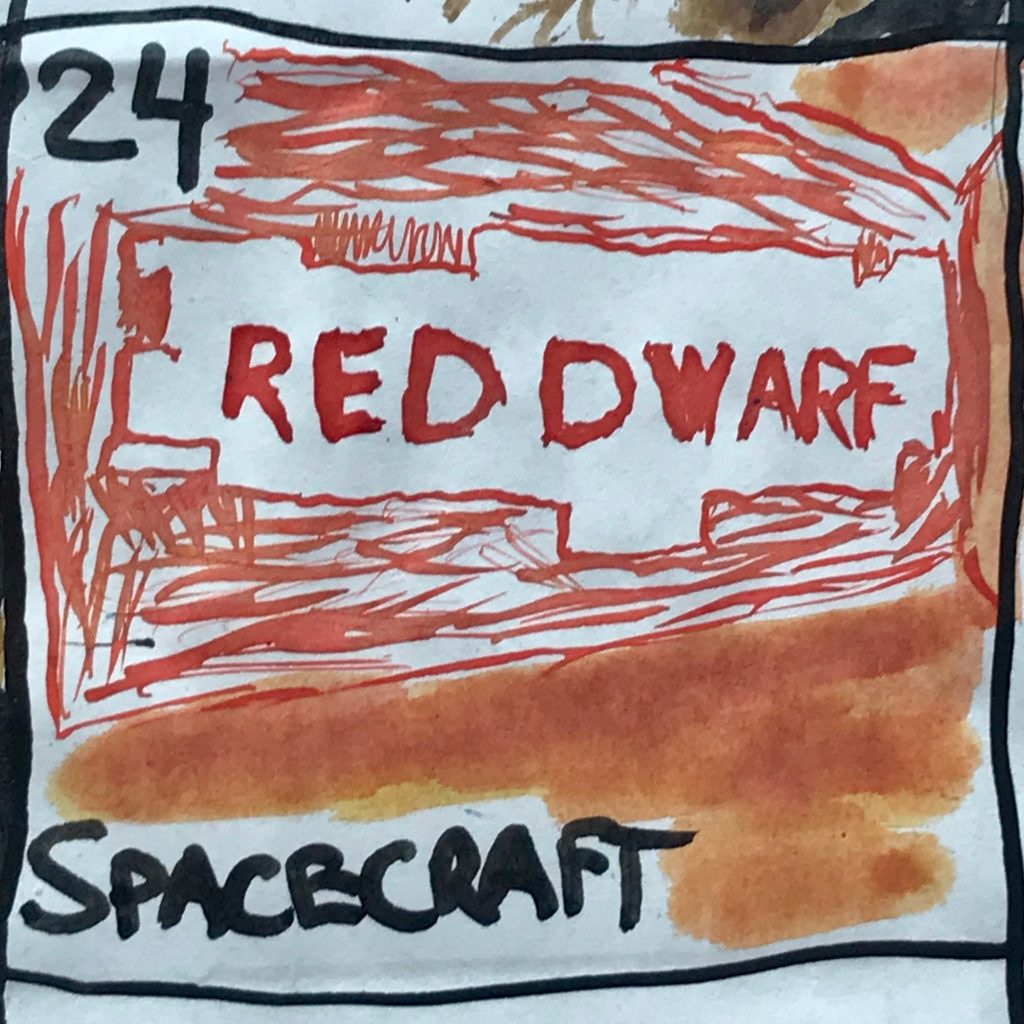 24
RED DWARF
SPACECRAFT